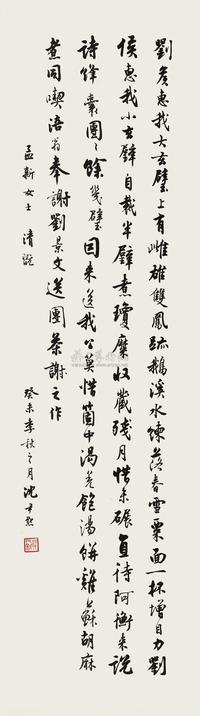 劉侯惠我大玄璧上有雌雄雙鳳跡鵝溪水練落春雪粟面一杯增目力劉
侯惠我小玄璧自裁半璧煮瓊糜收藏殘月惜未碾直待阿衡來說
詩絳囊團團餘幾璧因來送我公莫惜箇中渴羌飽湯餅雞蘇胡麻
煮同喫涪翁奉謝劉景文送團茶謝之作
孟斯女士 清謐
癸未季秋之月沈尹默